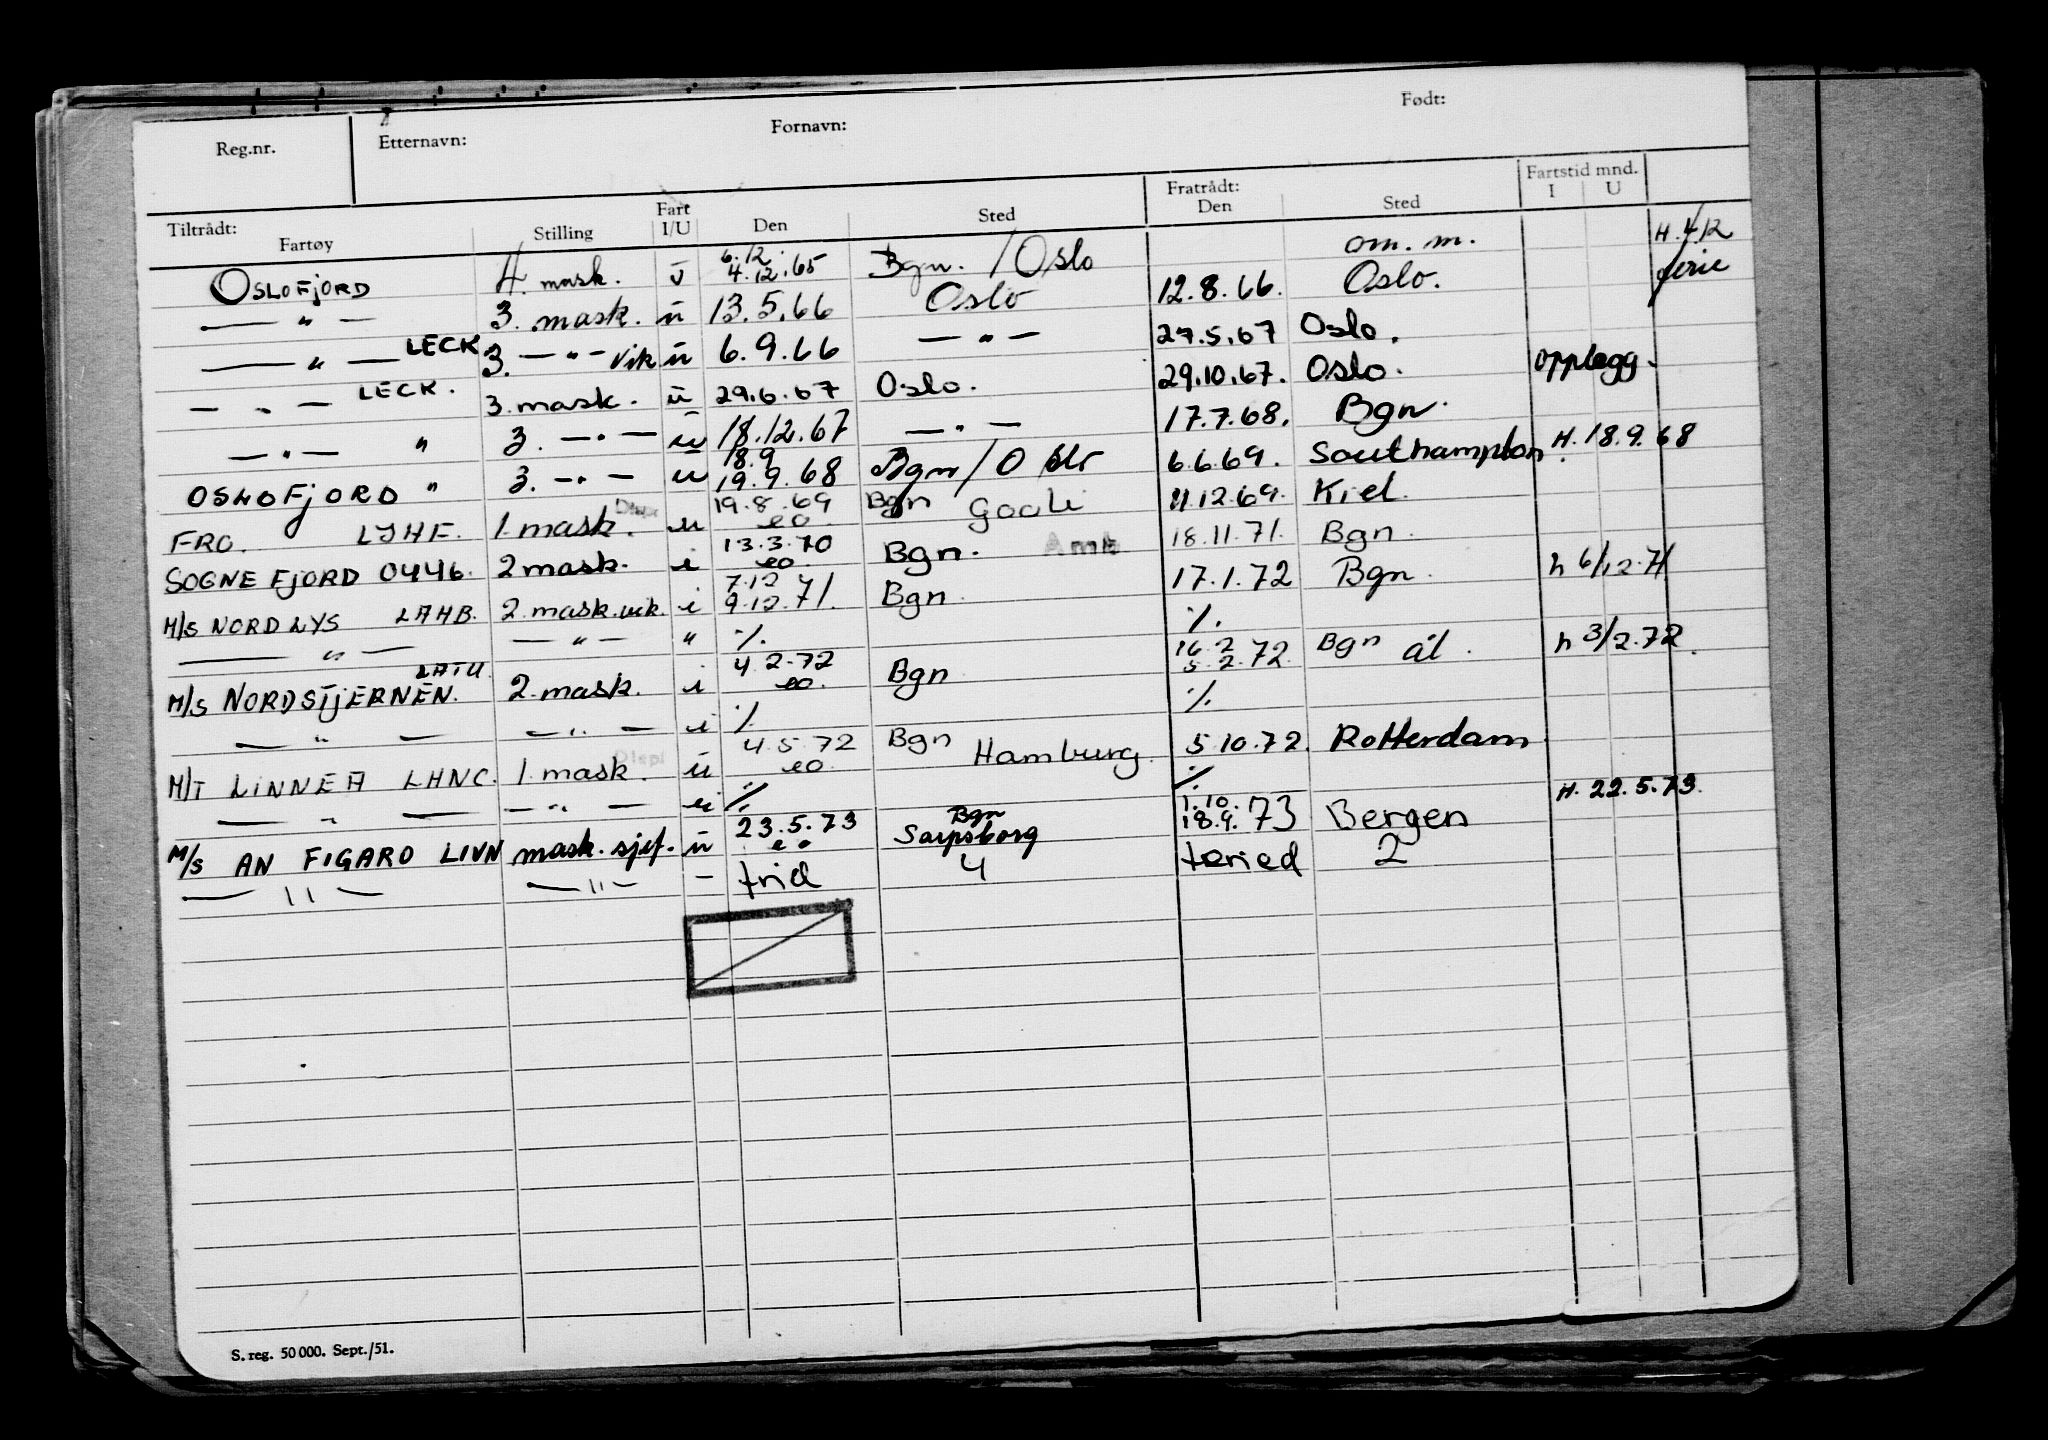 Reg.nr. Etternavn: Fornavn: Født:
Tiltrådt: Fartøy Stilling Fart I/U Den Sted Fratrådt: Den Sted Fartstid mnd. I U
OSLOFJORD 4. mask. ū 6.12. 4.12.65 Bgn. / Oslo om. m. H. 4/12
— " — 3. mask. ū 13.5.66 Oslo 12.8.66. Oslo. ferie
— " — LECK 3. — " — vik ū 6.9.66 — " — 27.5.67 Oslo.
— " — LECK. 3. mask. ū 29.6.67 Oslo. 29.10.67. Oslo. opplegg.
— " — " 3. — " — ū 18.12.67 — " — 17.7.68. Bgn.
OSLOFJORD " 3. — " — ū 18.9 19.9.68 Bgn / Oslo 6.6.69. Southampton H. 18.9.68
FRO. LJHF. 1. mask. Disp u 19.8.69 eo Bgn 11.12.69. Kiel.
SOGNEFJORD 0446. 2 mask. i 13.3.70 eo. Bgn. Amk 18.11.71. Bgn.
M/S NORDLYS LAHB. 2. mask. vik. i 7.12 9.12.71. Bgn 17.1.72 Bgn. h 6/12.71
— " — — " — " ./. ./.
M/S NORDSTJERNEN. LATU. 2. mask. i 4.2.72 eo. Bgn 16.2 5.2.72. Bgn ál. h 3/2.72.
— " — — " — i ./. ./.
M/T LINNEA LHNC. 1. mask. Displ ū 4.5.72 eo Bgn Hamburg. 5.10.72. Rotterdam
— " — — " — ./. ./.
M/S AN FIGARO LIVN mask. sjef. ū 23.5.73 eo Bgn Sarpsborg 1.10. 18.9.73 Bergen H. 22.5.73.
— " — — " — – frid 4 feried 2
S. reg. 50 000. Sept./51.